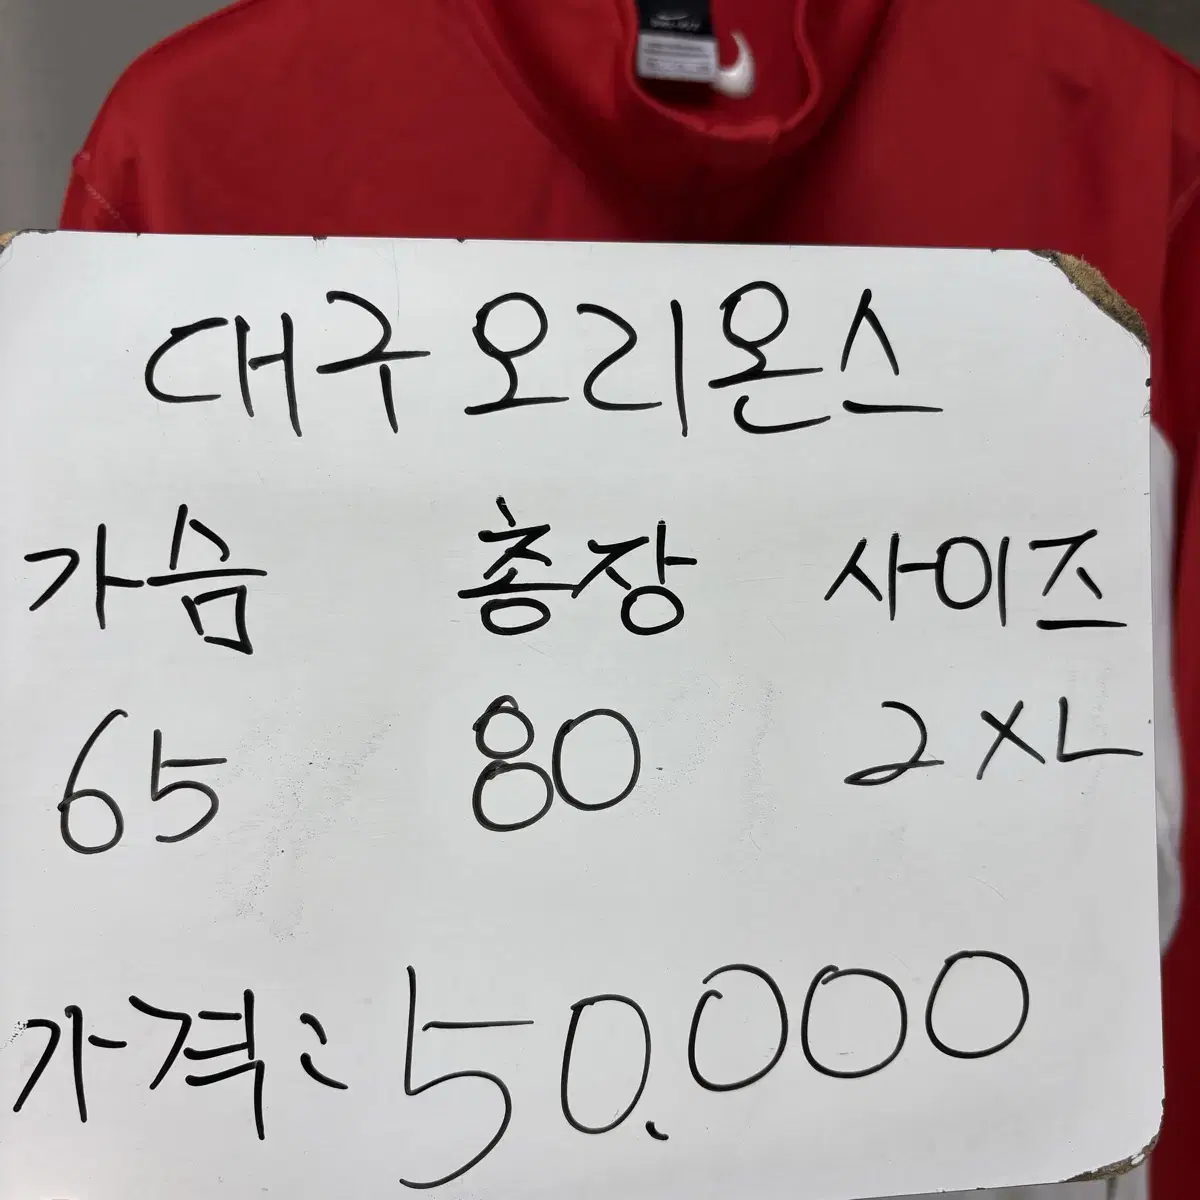 대구 오리온스
가슴 총장 사이즈
65 80 2XL
가격: 50.000